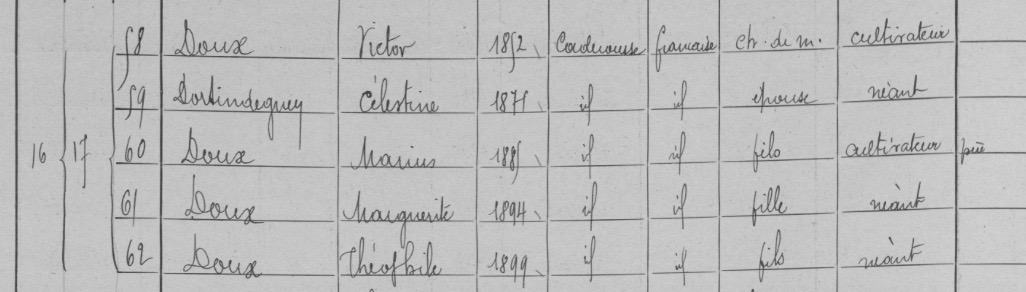 58 Doux Victor 1852 Caderousse française ch. de m. cultivateur
59 Célestine 1871 id id épouse néant
16 17 60 Doux Marius 1885 id id fils cultivateur
61 Doux Marguerite 1894 id id fille néant
62 Doux Théophile 1899 id id fils néant